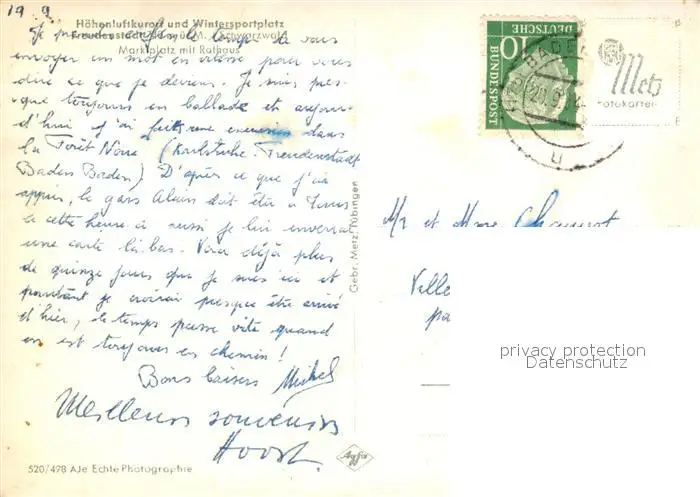 19 9
Höhenluftkurort und Wintersportplatz
Freudenstadt Schwarzwald
Marktplatz mit Rathaus
Je le temps de vous
envoyer un mot en vitesse pour vous
dire ce que je deviens. Je suis pres-
que toujours en ballade et aujour-
d'hui j'ai fait une excursion dans
la Forêt Noire (Karlsruhe. Freudenstadt
Baden Baden) D'après ce que j'ai
appris, le gars Alain doit être à
à cette heure-ci aussi je lui enverrai
une carte là-bas. Voici déjà plus
de quinze jours que je suis ici et
pourtant je croirai presque être arrivé
d'hier, le temps passe vite quand
on est toujours en chemin!
Bons baisers Michel
Meilleurs souvenirs
Horst
520/498 AJe Echte Photographie
Agfa
Gebr. Metz, Tübingen
DEUTSCHE
BUNDESPOST
10
BADEN
Metz
Fotokarten
Mr et Mme
Ville
pa
privacy protection
Datenschutz